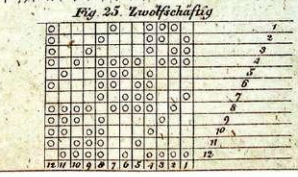 Fig. 25. Zwölfschäftig
1
2
3
4
5
6
7
8
9
10
11
12
12 11 10 9 8 7 6 5 4 3 2 1